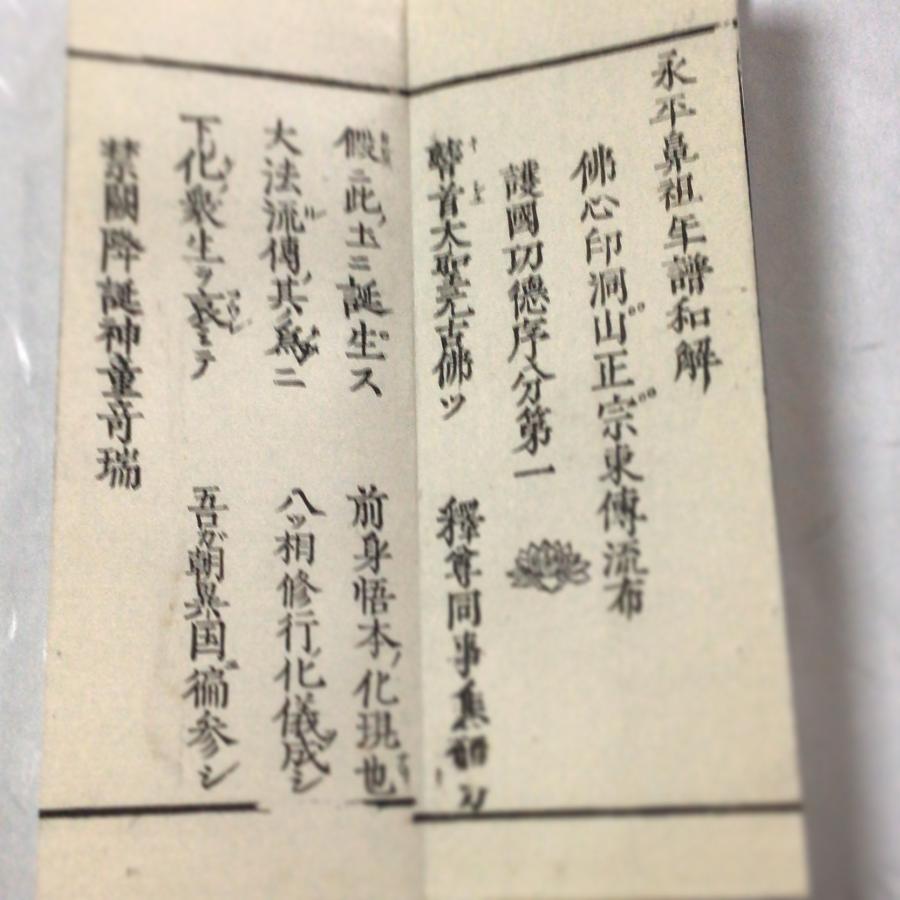 永平鼻祖年譜和解
佛心印洞山正宗東傳流布
護國功德序分第一
稽首大聖元古佛ツ 釋尊同事
假ニ此ノ土ニ誕生ス 前身悟本ノ化現也
大法流傳其ノ爲ニ 八ッ相修行ノ化儀成シ
下化衆生ヲ哀ミテ 吾ガ朝異国徧参シ
禁闕降誕神童奇瑞